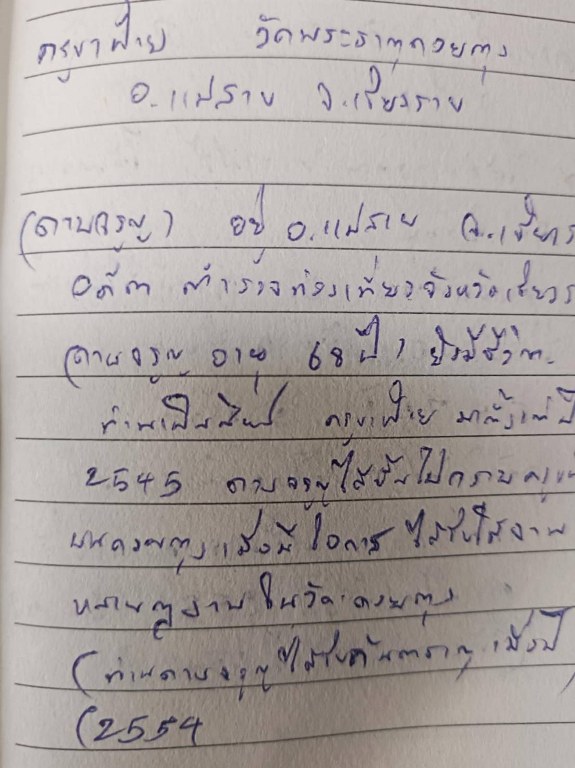 ครูบาฝ้าย วัดพระธาตุดอยตุง
อ.แม่สาย จ.เชียงราย
(ดาบจรูญ) อยู่ อ.แม่สาย จ.เชียงร
อดีต ตำรวจท่องเที่ยวจังหวัดเชียงร
(ดาบจรูญ อายุ 68 ปี) ยังมีชีวิต
ท่านเป็นศิษย์ ครูบาฝ้าย มาตั้งแต่ปี
2545 ดาบจรูญได้ขึ้นไปกราบครูบ
บนดอยตุง เมื่อมีโอกาส ได้รับใช้งาน
หลายๆงาน ในวัดดอยตุง
(ท่านดาบจรูญ ได้รับ เมื่อปี
(2554